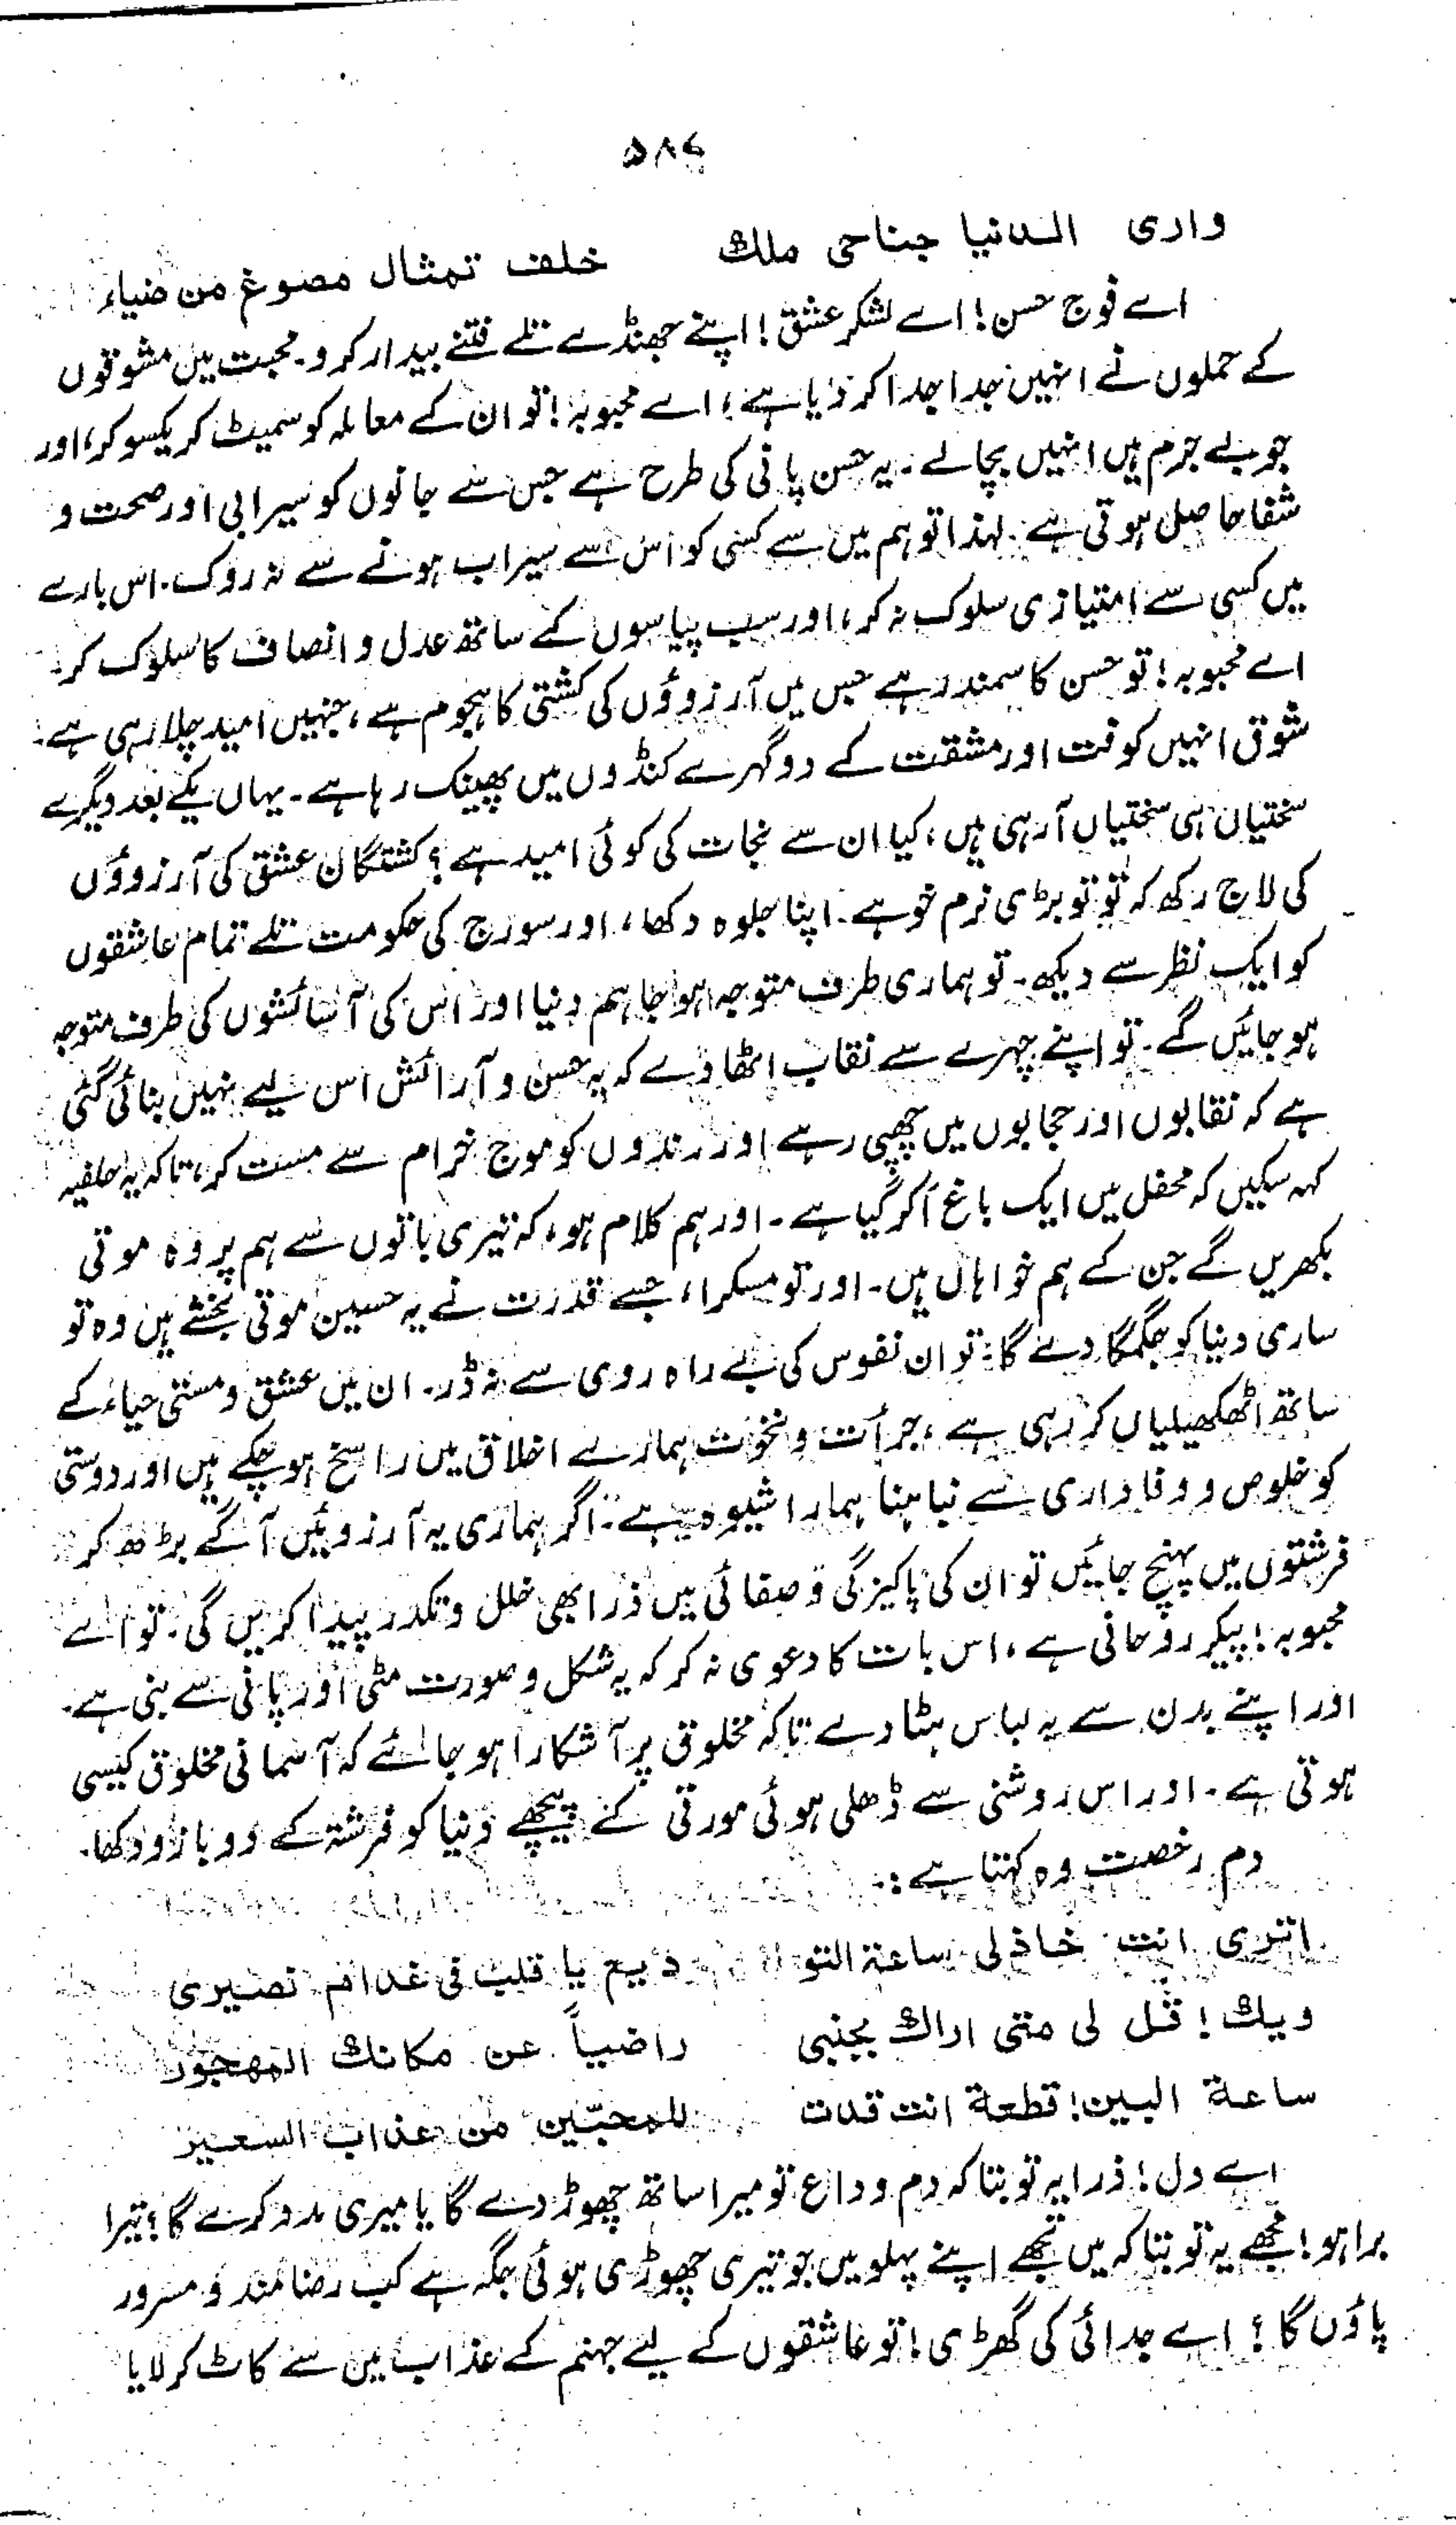 ۵۸۷
واری الدنیا جناحی ملك خلف تمثال مصوغ من ضیاء
اے فوج حسن! اے لشکر عشق! اپنے جھنڈے تلے فتنے بیدار کرو۔ محبت میں مشوقوں
کے حملوں نے انہیں جدا جدا کر دیا ہے، اے محبوبہ! تو ان کے معاملہ کو سمیٹ کر یکسو کر، اور
جو بے جرم ہیں انہیں بچالے۔ یہ حسن پانی کی طرح ہے جس سے جانوں کو سیرابی اور صحت و
شفا حاصل ہوتی ہے۔ لہذا تو ہم میں سے کسی کو اس سے سیراب ہونے سے نہ روک۔ اس بارے
میں کسی سے امتیازی سلوک نہ کر، اور سب پیاسوں کے ساتھ عدل و انصاف کا سلوک کر۔
اے محبوبہ! تو حسن کا سمندر ہے جس میں آرزوؤں کی کشتی کا ہجوم ہے، جنہیں امید چلا رہی ہے۔
شوق انہیں کوفت اور مشقت کے دو گہرے کنڈوں میں پھینک رہا ہے۔ یہاں یکے بعد دیگرے
سختیاں ہی سختیاں آ رہی ہیں، کیا ان سے نجات کی کوئی امید ہے؟ کشتگان عشق کی آرزوؤں
کی لاج رکھ کہ تو تو بڑی نرم خو ہے۔ اپنا جلوہ دکھا، اور سورج کی حکومت تلے تمام عاشقوں
کو ایک نظر سے دیکھ۔ تو ہماری طرف متوجہ ہو جا ہم دنیا اور اس کی آسائشوں کی طرف متوجہ
ہو جائیں گے۔ تو اپنے چہرے سے نقاب اٹھا دے کہ یہ حسن و آرائش اس لیے نہیں بنائی گئی
ہے کہ نقابوں اور حجابوں میں چھپی رہے اور رندوں کو موج خرام سے مست کر، تاکہ یہ حلفیہ
کہہ سکیں کہ محفل میں ایک باغ آ کر گیا ہے۔ اور ہم کلام ہو، کہ تیری باتوں سے ہم پر وہ موتی
بکھریں گے جن کے ہم خواہاں ہیں۔ اور تو مسکرا، جسے قدرت نے یہ حسین موتی بخشے ہیں وہ تو
ساری دنیا کو جگمگا دے گا۔ تو ان نفوس کی بے راہ روی سے نہ ڈر۔ ان میں عشق و مستی حیاء کے
ساتھ اٹھکھیلیاں کر رہی ہے، جرأت و نخوت ہمارے اخلاق میں راسخ ہو چکے ہیں اور دوستی
کو خلوص و وفاداری سے نباہنا ہمارا شیوہ ہے۔ اگر ہماری یہ آرزوئیں آگے بڑھ کر
فرشتوں میں پہنچ جائیں تو ان کی پاکیزگی و صفائی میں ذرا بھی خلل و تکدر پیدا کریں گی۔ تو اے
محبوبہ! پیکر روحانی ہے، اس بات کا دعوی نہ کر کہ یہ شکل و صورت مٹی اور پانی سے بنی ہے۔
اور اپنے بدن سے یہ لباس ہٹا دے تاکہ مخلوق پر آشکارا ہو جائے کہ آسمانی مخلوق کیسی
ہوتی ہے۔ اور اس روشنی سے ڈھلی ہوئی مورتی کے پیچھے دنیا کو فرشتہ کے دو بازو دکھا۔
دم رخصت وہ کہتا ہے:۔
اتری انت خاذلی ساعة التو دیع یا قلب فی غدام نصیری
ویك! قل لی متی اراك بجنبی راضیاً عن مكانك المهجور
ساعة البین! قطعة انت قدت للمحبّین من عذاب السعیر
اے دل! ذرا یہ تو بتا کہ دم وداع تو میرا ساتھ چھوڑ دے گا یا میری مدد کرے گا؟ تیرا
برا ہو! مجھے یہ تو بتا کہ میں تجھے اپنے پہلو میں جو تیری چھوڑی ہوئی جگہ ہے کب رضا مند و مسرور
پاؤں گا؟ اے جدائی کی گھڑی! تو عاشقوں کے لیے جہنم کے عذاب میں سے کاٹ کر لایا